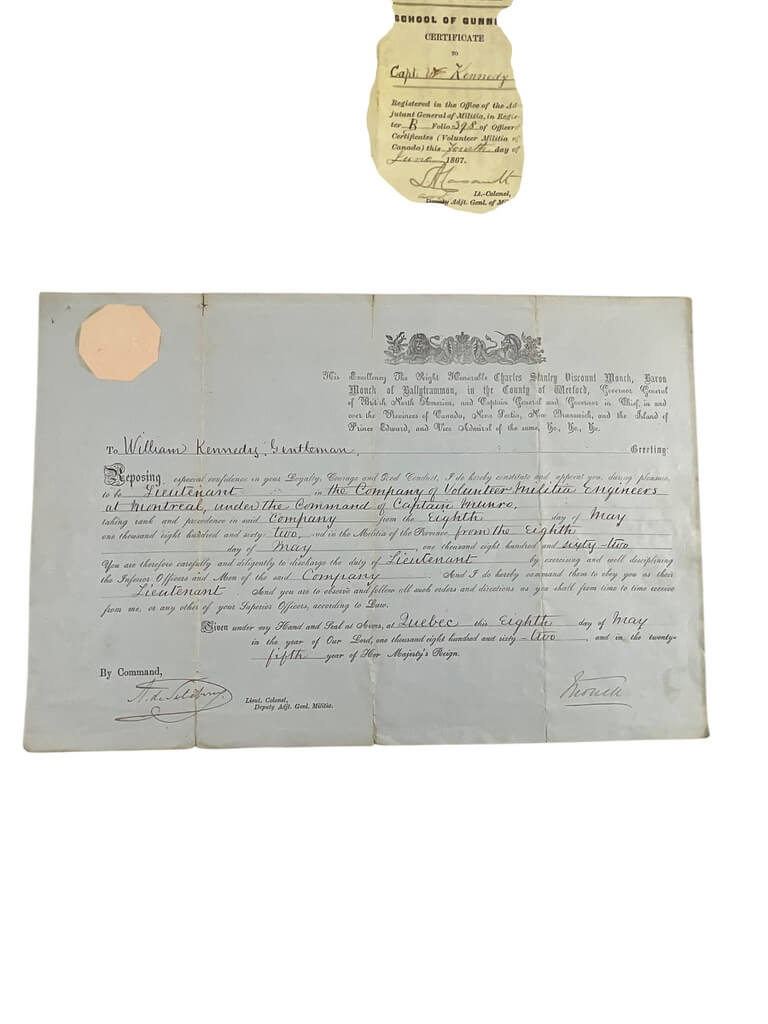 SCHOOL OF GUNN
CERTIFICATE
TO
Capt. Wm Kennedy
Registered in the Office of the Ad-
jutant General of Militia, in Regis-
ter B Folio 398 of Officers
Certificates (Volunteer Militia of
Canada) this Fourth day of
June 1867.
Lt.-Colonel,
Deputy Adjt. Genl. of Mi
His Excellency The Right Honorable Charles Stanley Viscount Monck, Baron
Monck of Ballytrammon, in the County of Wexford, Governor General
of British North America, and Captain General and Governor in Chief, in and
over the Provinces of Canada, Nova Scotia, New Brunswick, and the Island of
Prince Edward, and Vice Admiral of the same, &c., &c., &c.
To William Kennedy, Gentleman, Greeting:
Reposing especial confidence in your Loyalty, Courage and Good Conduct, I do hereby constitute and appoint you, during pleasure,
to be Lieutenant in the Company of Volunteer Militia Engineers
at Montreal, under the Command of Captain Munro,
taking rank and precedence in said Company from the Eighth day of May
one thousand eight hundred and sixty-two, and in the Militia of the Province from the Eighth
day of May one thousand eight hundred and sixty-two
You are therefore carefully and diligently to discharge the duty of Lieutenant by exercising and well disciplining
the Inferior Officers and Men of the said Company. And I do hereby command them to obey you as their
Lieutenant. And you are to observe and follow all such orders and directions as you shall from time to time receive
from me, or any other of your Superior Officers, according to Law.
Given under my Hand and Seal at Arms, at Quebec this Eighth day of May
in the year of Our Lord, one thousand eight hundred and sixty-two, and in the twenty-
fifth year of Her Majesty's Reign.
By Command,
Monck
Lieut. Colonel,
Deputy Adjt. Genl. Militia.